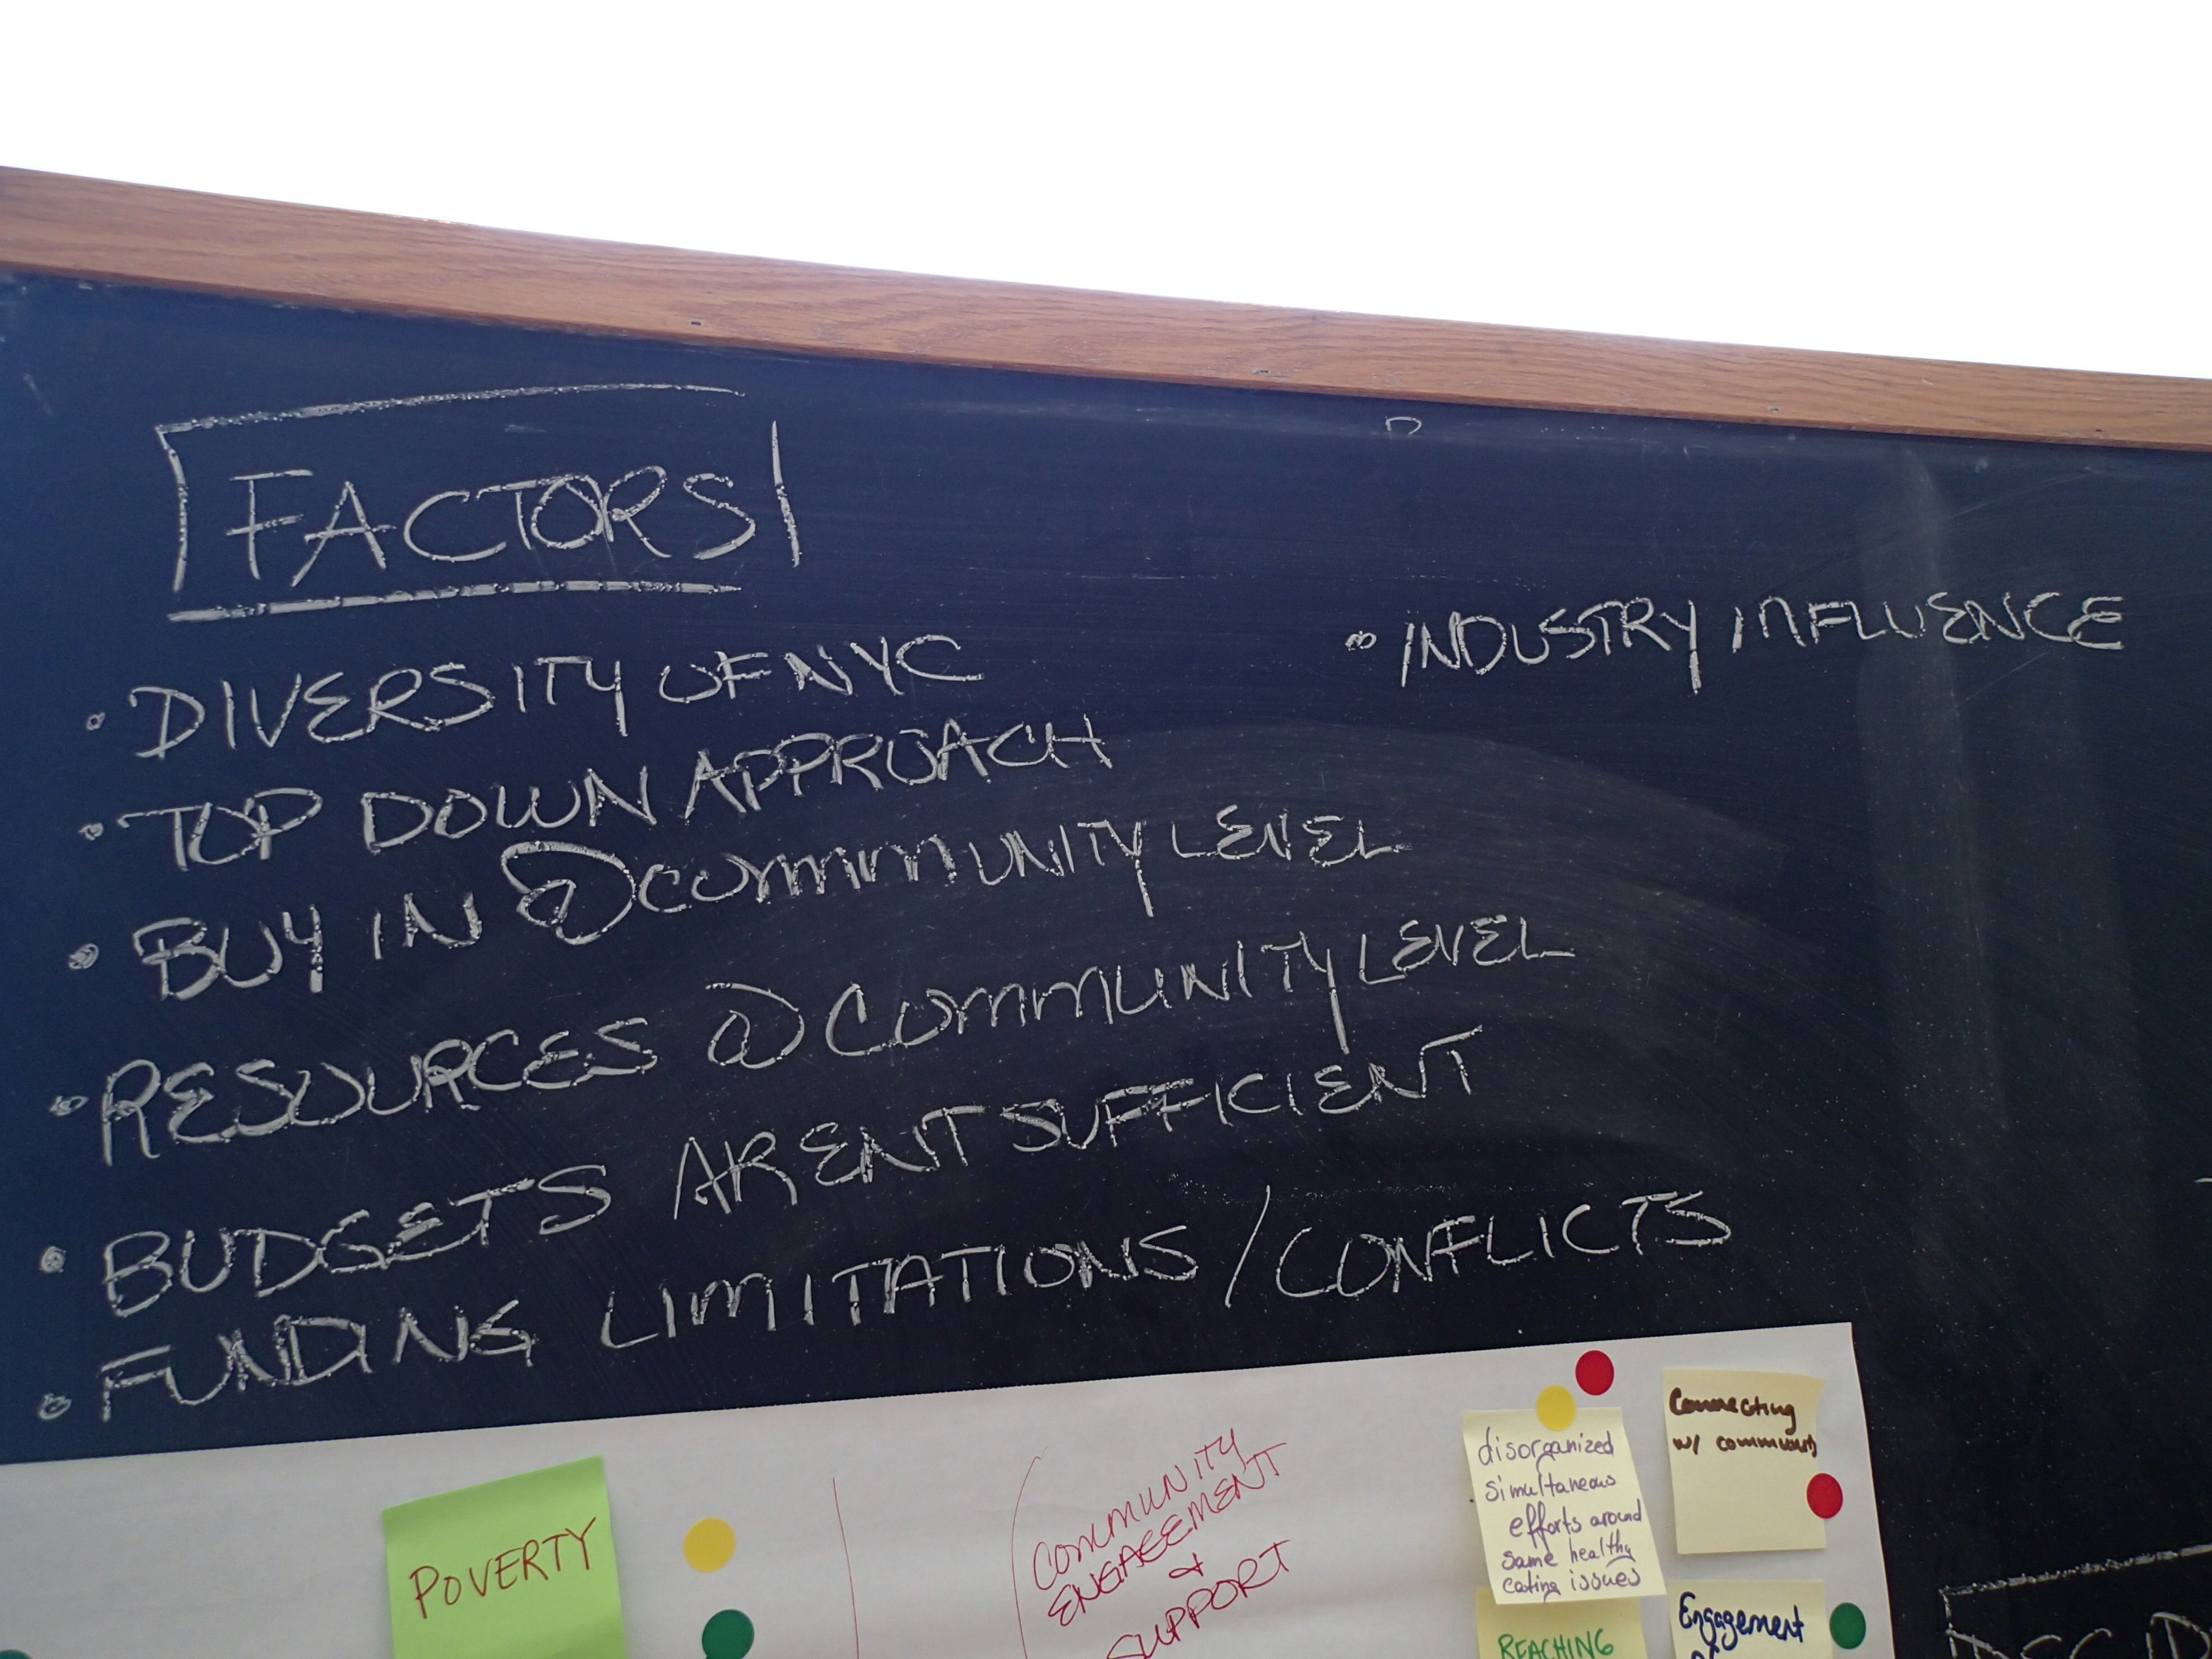 FACTORS
• DIVERSITY OF NYC
• TOP DOWN APPROACH
• BUY IN @ COMMUNITY LEVEL
• RESOURCES @ COMMUNITY LEVEL
• BUDGETS ARENT SUFFICIENT
• FUNDING LIMITATIONS / CONFLICTS
• INDUSTRY INFLUENCE
POVERTY
COMMUNITY
ENGAGEMENT
&
SUPPORT
disorganized
simultaneous
efforts around
same healthy
eating issues
REACHING
Connecting
w/ community
Engagement